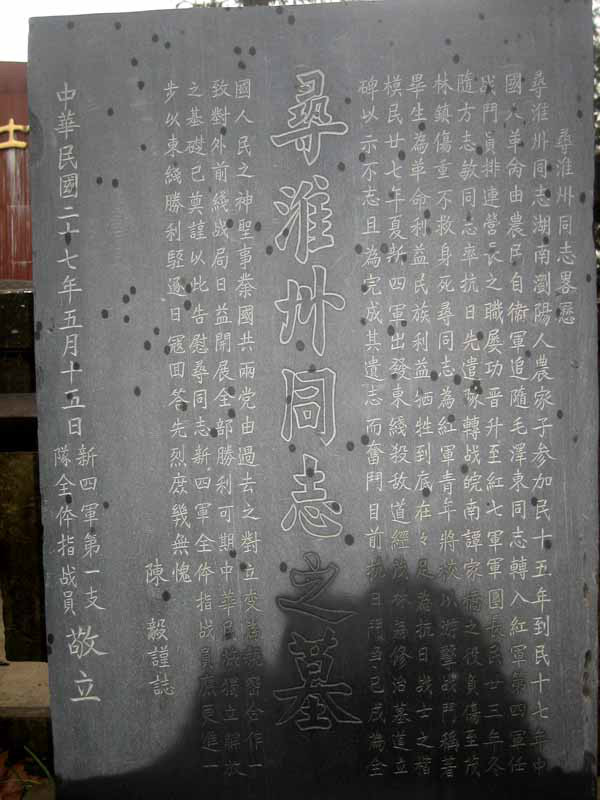 尋淮卅同志畧歷
尋淮卅同志湖南瀏陽人農家子參加民十五年到民十七年中
國人革命由農民自衛軍追隨毛澤東同志轉入紅軍第四軍任
战鬥員排連營長之職屡功晉升至紅七軍軍團長民廿三年冬
隨方志敏同志率抗日先遣隊轉战皖南譚家橋之役負傷至茂
林鎮傷重不救身死尋同志為紅軍青年將校以游擊战鬥稱著
畢生為革命利益民族利益牺牲到底在々足為抗日战士之楷
模民廿七年夏新四軍出發東綫殺敌道經茂林為修治墓道立
碑以示不志且為完成其遺志而奮鬥目前抗日已成為全
尋淮卅同志之墓
國人民之神聖事業國共兩党由過去之對立变為親密合作一
致對外前綫战局日益開展全部勝利可期中華民族獨立解放
之基礎已奠謹以此告慰尋同志新四軍全体指战員庶更進一
步以東綫勝利驅逐日寇回答先烈庶幾無愧
陳毅謹誌
中華民國二十七年五月十五日
新四軍第一支
隊全体指战員
敬立